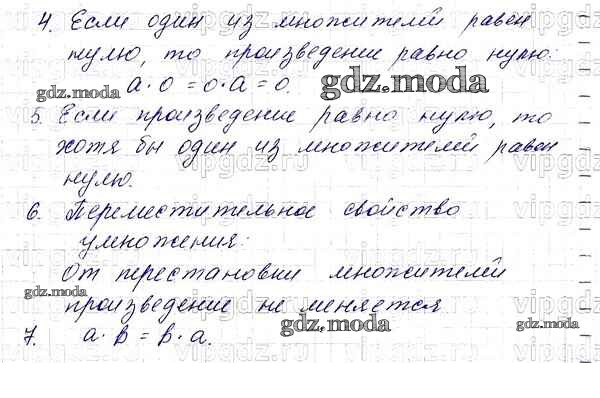 4. Если один из множителей равен
нулю, то произведение равно нулю.
a·0=0·a=0.
5. Если произведение равно нулю, то
хотя бы один из множителей равен
нулю.
6. Переместительное свойство
умножения:
От перестановки множителей
произведение не меняется
7. a·b=b·a.
gdz.moda
gdz.moda
gdz.moda
gdz.moda
gdz.moda